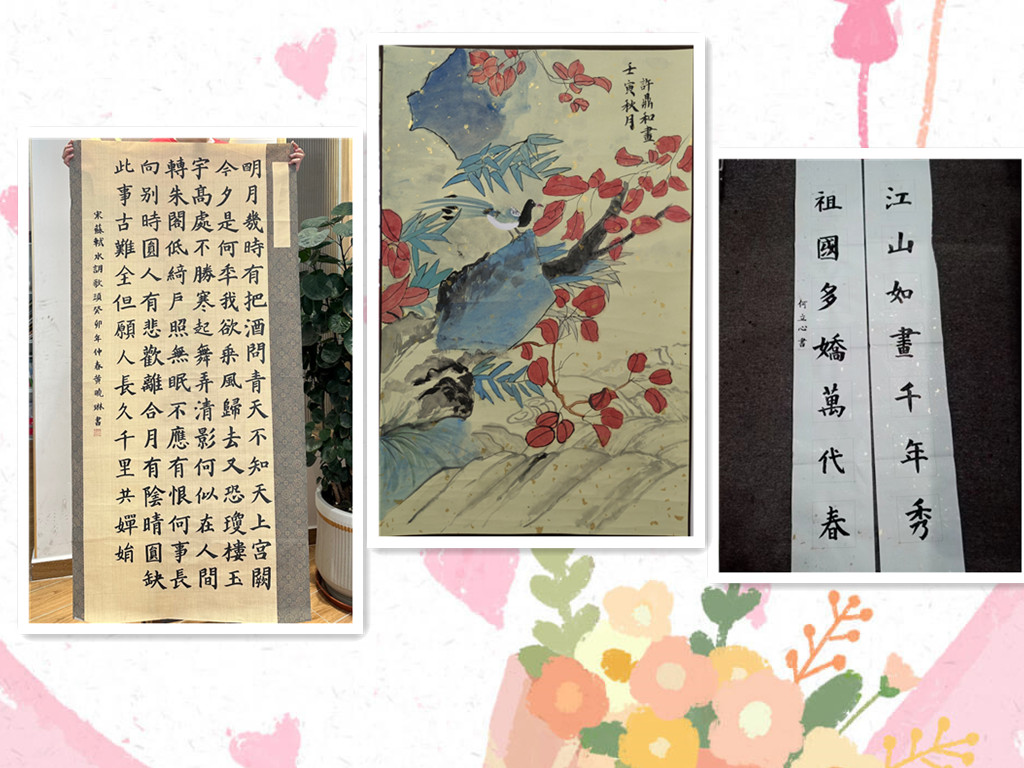 明月幾時有把酒問青天不知天上宮闕
今夕是何秊我欲乘風歸去又恐瓊樓玉
宇髙處不勝寒起舞弄清影何似在人間
轉朱閣低綺戶照無眠不應有恨何事長
向別時圓人有悲歡離合月有陰晴圓缺
此事古難全但願人長久千里共嬋娟
宋蘇軾水調歌頭癸卯年仲春黃曉琳書
許鼎和畫
壬寅秋月
江山如畫千年秀
祖國多嬌萬代春
何立心書